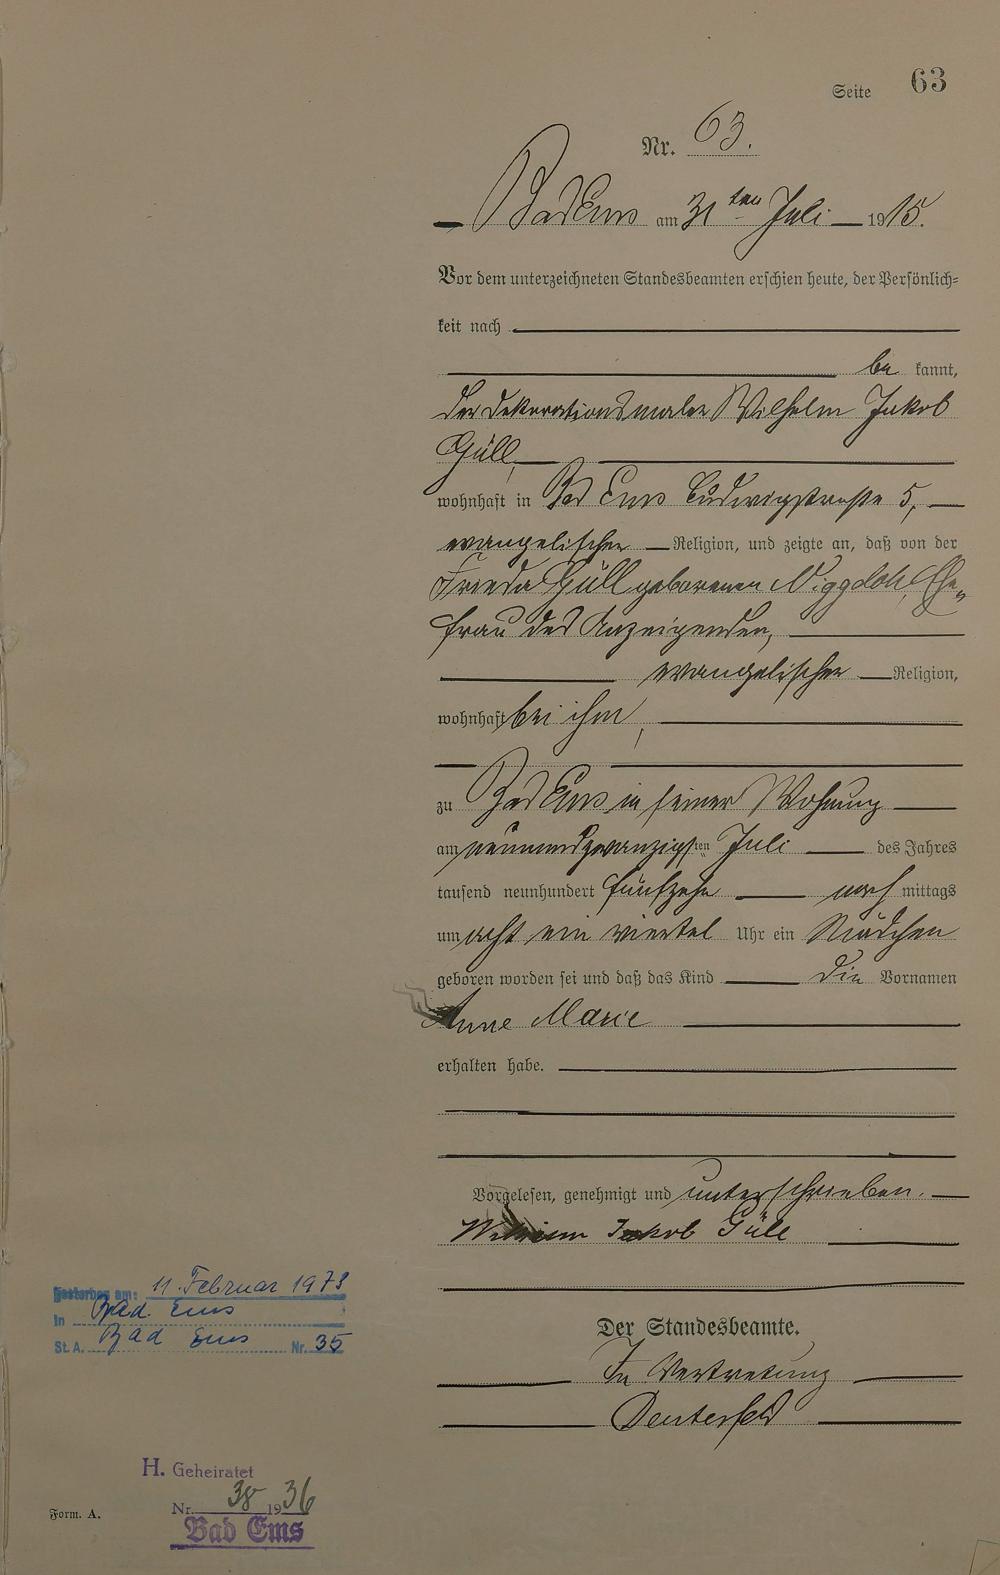 Seite 63
Nr. 63.
Bad Ems am 31ten Juli 1915.
Vor dem unterzeichneten Standesbeamten erschien heute, der Persönlich-
keit nach
be kannt,
der Dekorationsmaler Wilhelm Jakob
Güll,
wohnhaft in Bad Ems Ludwigstraße 5,
evangelischer Religion, und zeigte an, daß von der
Frieda Güll geborenen Ehe-
frau des Anzeigenden,
evangelischer Religion,
wohnhaft bei ihm,
zu Bad Ems in seiner Wohnung
am neunundzwanzigsten Juli des Jahres
tausend neunhundert fünfzehn nach mittags
um acht ein viertel Uhr ein Mädchen
geboren worden sei und daß das Kind die Vornamen
Anne Marie
erhalten habe.
Vorgelesen, genehmigt und unterschrieben.
Wilhelm Jakob Güll
Der Standesbeamte.
In Vertretung
Gestorben am: 11. Februar
In Bad Ems
St. A. Bad Ems Nr. 35
H. Geheiratet
Nr. 38 1936
Bad Ems
Form. A.